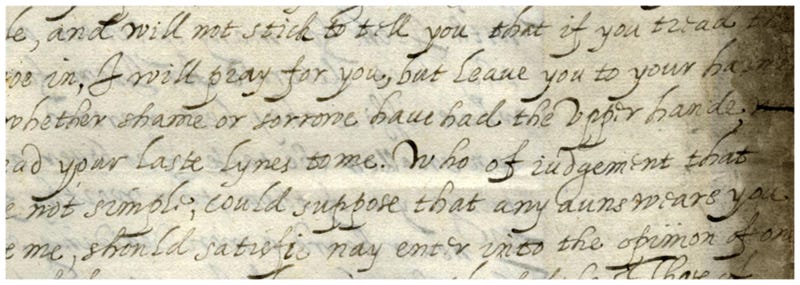 le, and will not stick to tell you that if you tread
in, I will pray for you, but leave you to your
whether shame or sorrowe have had the Upper hande,
ad your laste lynes to me. Who of iudgement that
not simple, could suppose that any aunsweare you
e me, should satisfi nay enter into the opinion of